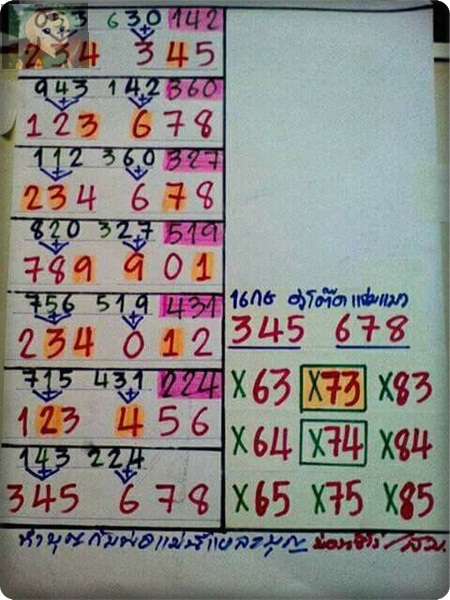 053 630 142
234 345
943 142 360
123 678
112 360 327
234 678
820 327 519
789 901
756 519 431
234 012
715 431 224
123 456
143 224
345 678
345 678
X63 X73 X83
X64 X74 X84
X65 X75 X85